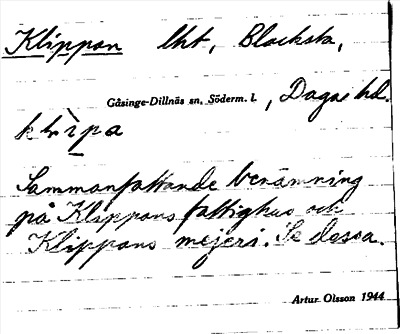 Klippan lht, Blacksta,
Gåsinge-Dillnäs sn. Söderm. l., Daga hd.
Sammanfattande benämning
på Klippans fattighus och
Klippans mejeri. Se dessa.
Artur Olsson 1944